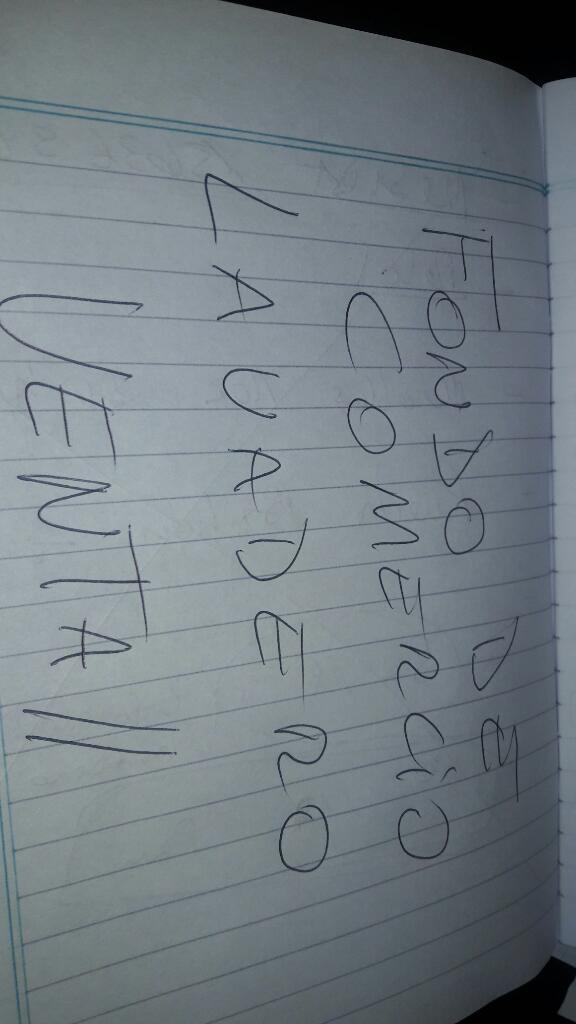 FONDO DE
COMERCiO
LAUADERO
VENTA //